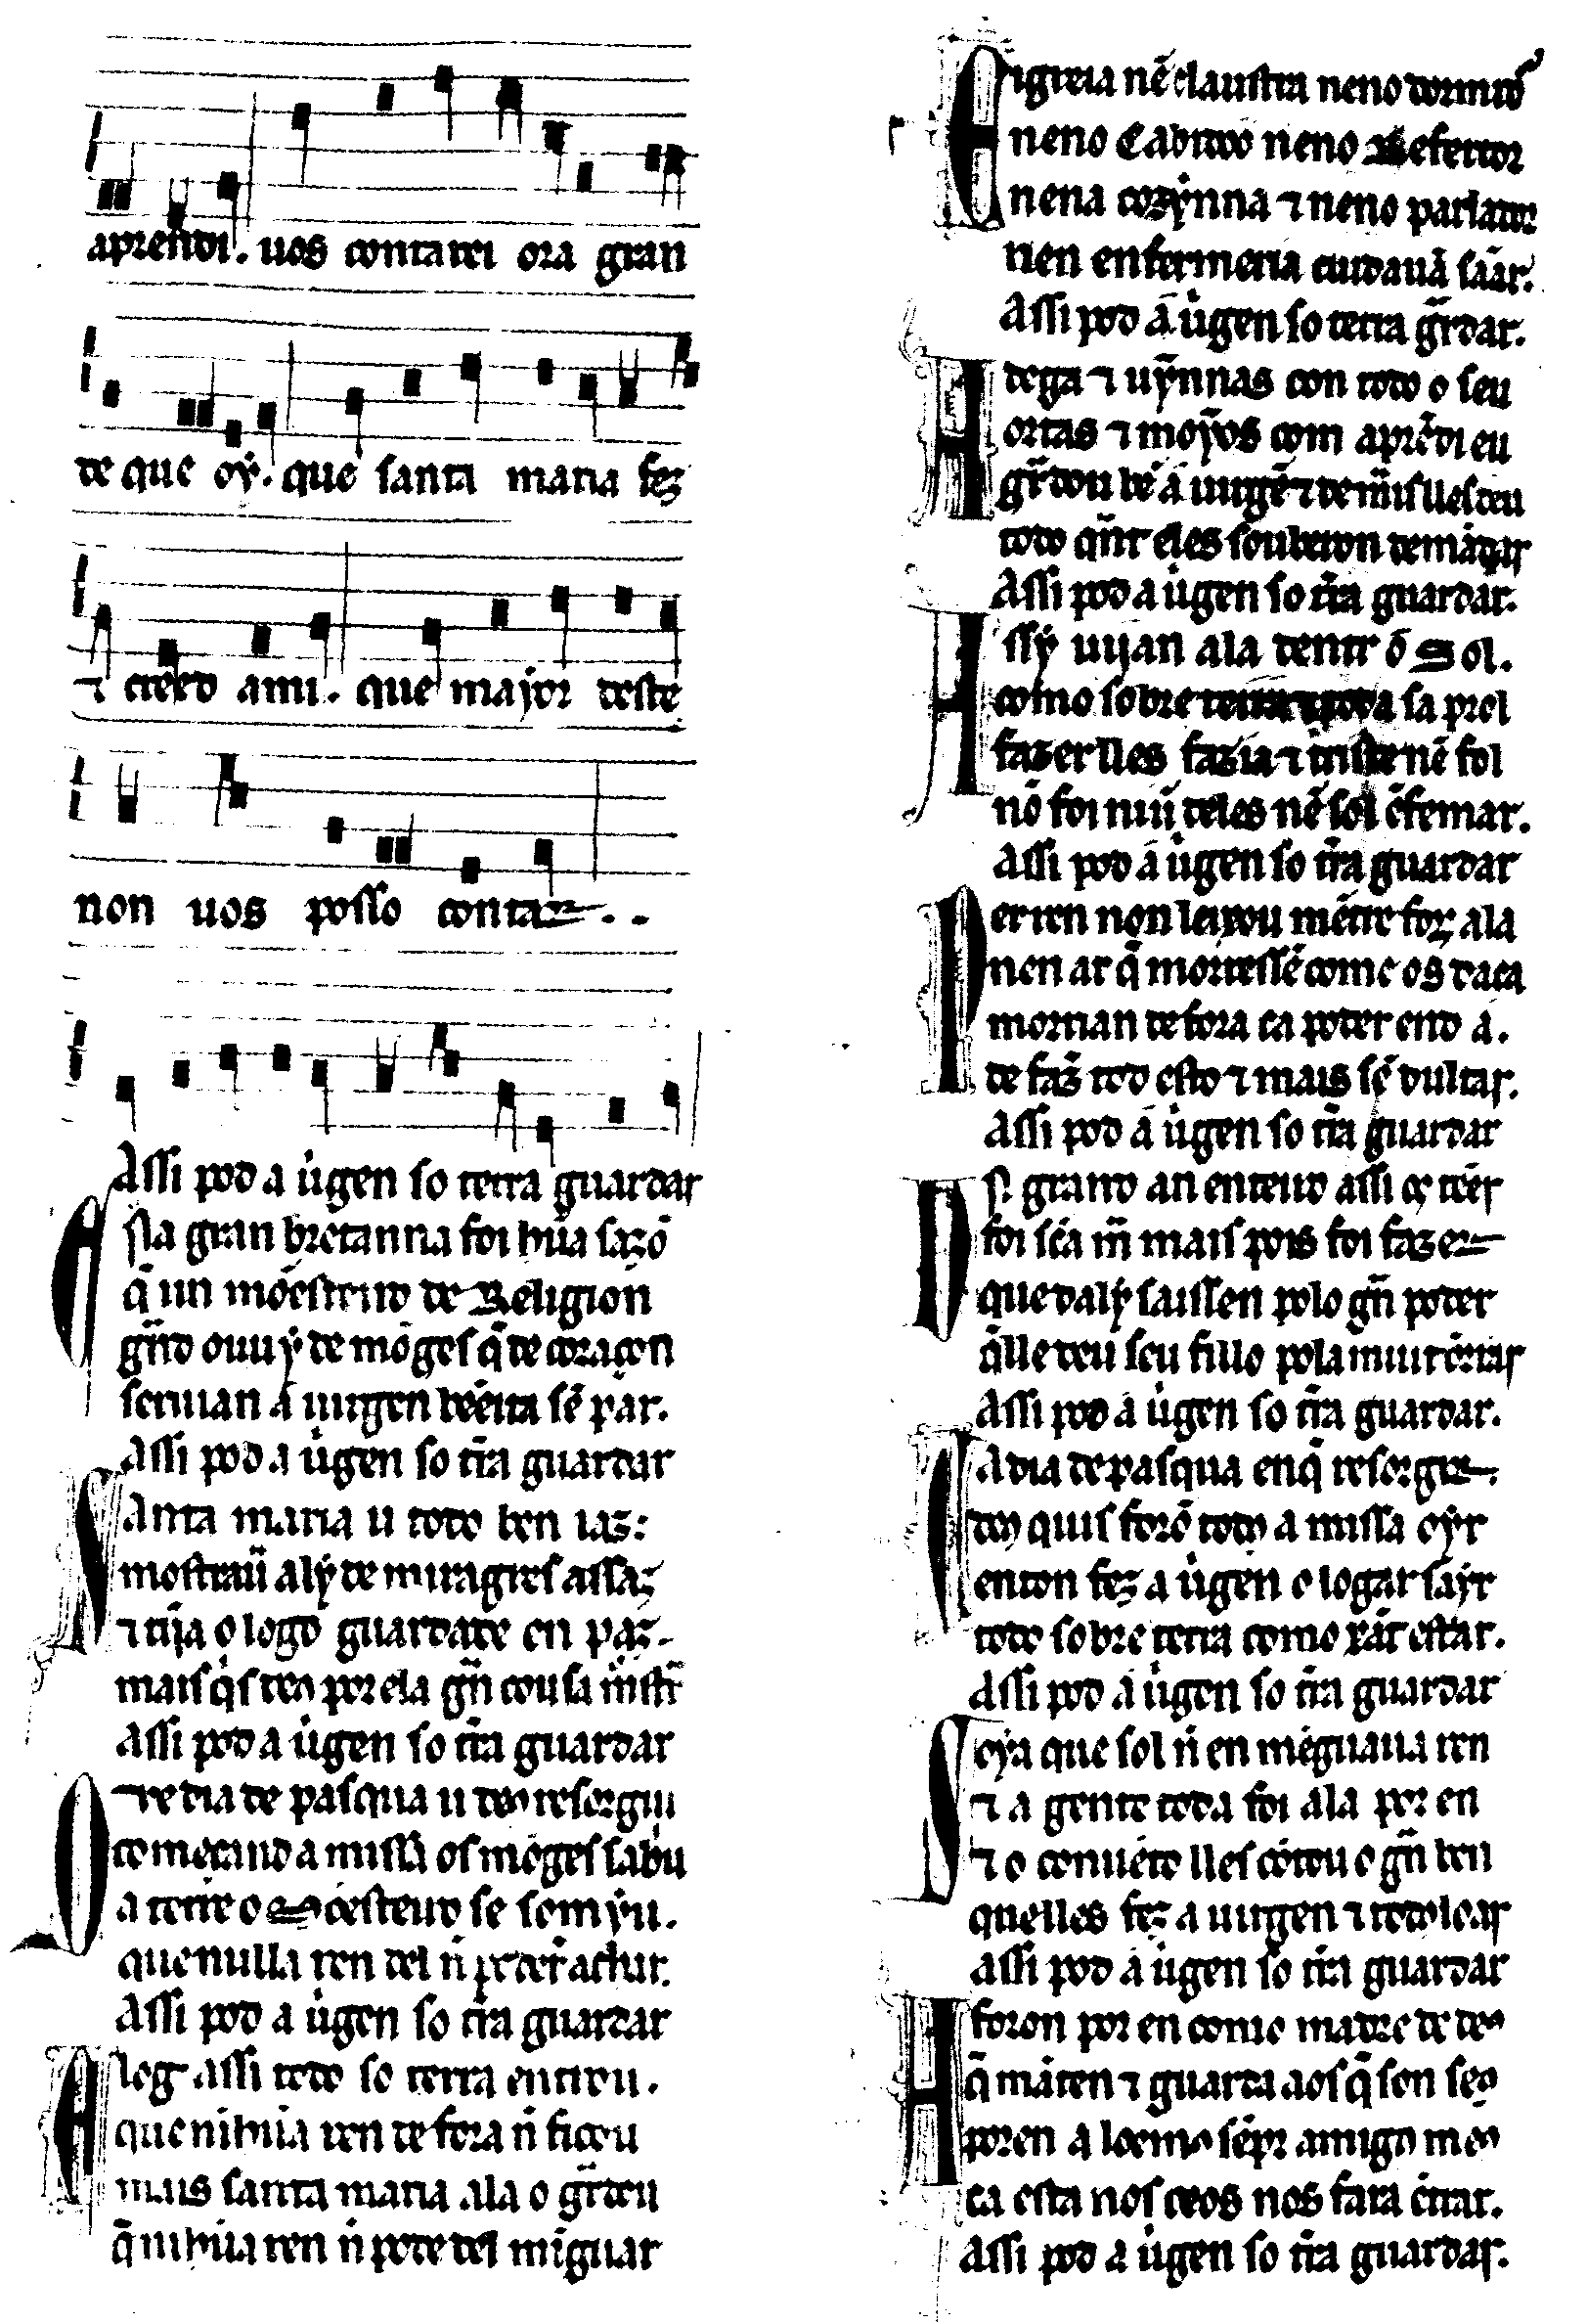 aprendi. uos contarei ora gran
de que oý. que santa maria fez
⁊ creed ami. que major deste
non uos posso contar..
Assi pod a uĩgen so terra guardar
Ena gran bretanna foi hũa sazõ
q̃ un mõesteiro de Religion
grãd ouuý de mõges q̃ de coraçon
seruian a uirgen bẽeita sẽ par.
Assi pod a uĩgen so tr̃ra guardar
Santa maria u todo ben iaz:
mostraũ alý de miragres assaz
⁊ tĩja o logo guardade en paz.
mais q̃s deꝯ por ela gñ cousa mostr̃
Assi pod a uĩgen so tr̃ra guardar
Ode dia de pasqua u deꝯ resorgiu
começand a missa os mõges sabiu
a terre o Mõesteiro se somýu.
que nulla ren del ñ poder achar.
Assi pod a uĩgen so tr̃ra guardar
A log assi todo so terra entrou.
que nihũa ren de fora ñ ficou
mais santa maria ala o gr̃dou
q̃ nihũa ren ñ pode del mĩguar
Eigreia nẽ claustra neno dormidor
neno Cabidoo neno Refertor
nena cozỹnna ⁊ neno parlador
nen enfermeria cuidauã sãar.
Assi pod a uĩgen so terra gr̃dar.
Adega ⁊ uỹnnas con todo o seu
ortas ⁊ moỹos com aprẽdi eu
gr̃dou bẽ a uirgẽ ⁊ de mais lles deu
todo qñt eles souberon demãdar
Assi pod a uĩgen so tr̃ra guardar.
Assý uijan ala dentr o Sol.
como sobre terra ⁊ toda sa prol
fazer lles fazia ⁊ triste nẽ fol
nõ foi niũ deles nẽ sol ẽfermar.
Assi pod a uĩgen so tr̃ra guardar
Per ren non leixou mẽtre foz ala
nen ar q̃ morressẽ come os daca
morrian de fora ca poder end a.
de faz̃ tod esto ⁊ mais sẽ dultar.
Assi pod a uĩgen so tr̃ra guardar
Des. grand an enteiro assi os teer
foi sc̃a mr̃ mais pois foi fazer
que dalý saissen polo gñ poder
q̃lle deu seu fillo pola muit õrrar
Assi pod a uĩgen so tr̃ra guardar.
Ca dia de pasqua en q̃ resorgir
deꝯ quis forõ todoꝯ a missa oýr
enton fez a uĩgen o logar saýr
todo sobre terra como x̃ar estar.
Assi pod a uĩgen so tr̃ra guardar
Soýa que sol ñ en mẽguaua ren
⁊ a gente toda foi ala por en
⁊ o conuẽto lles cõtou o gñ ben
quelles fez a uirgen ⁊ todoꝯ loar
Assi pod a uĩgen so tr̃ra guardar
A foron por en como madre de deꝯ
q̃ mãten ⁊ guarda aos q̃ son seꝯ
poren a loemꝯ sẽpr amigo meꝯ
ca esta nos ceos nos fara ẽtrar.
Assi pod a uĩgen so tr̃ra guardar.